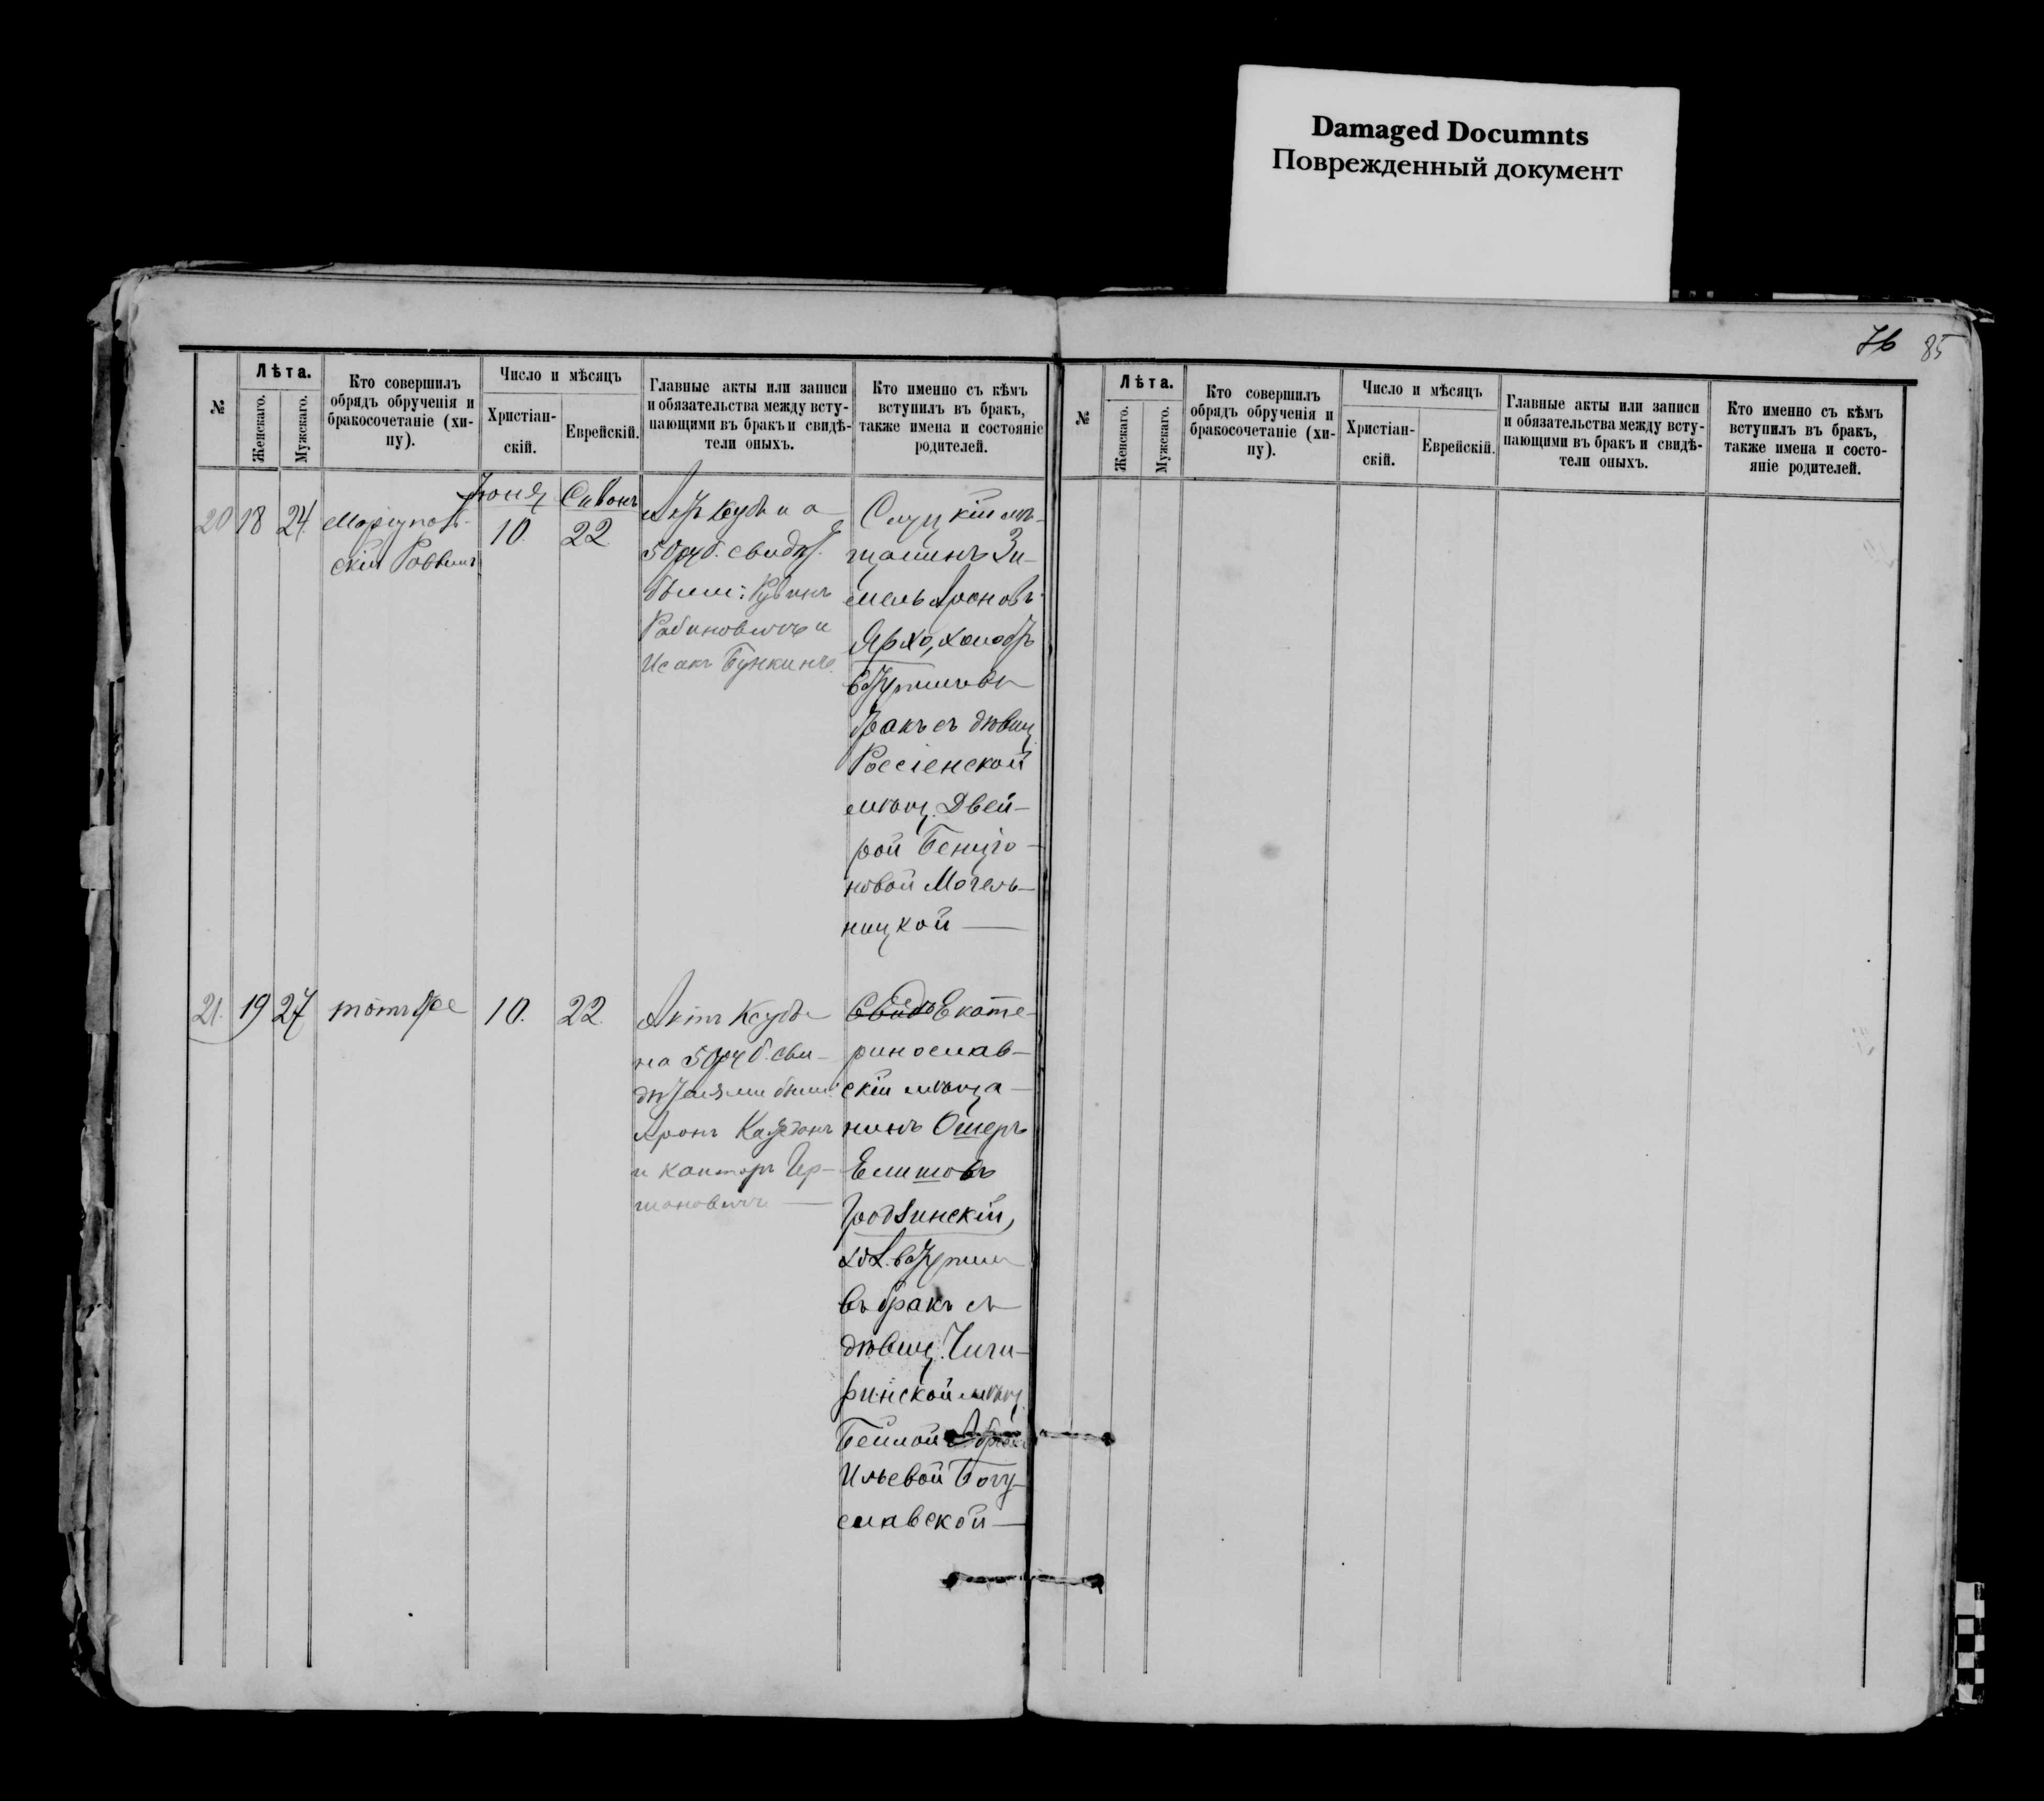 Damaged Documnts
Поврежденный документ
76 85
№
Лѣта.
Женскаго.
Мужскаго.
Кто совершилъ
обрядъ обрученія и
бракосочетаніе (хи-
пу).
Число и мѣсяцъ
Христіан-
скій.
Еврейскій.
Главные акты или записи
и обязательства между всту-
пающими въ бракъ и свидѣ-
тели оныхъ.
Кто именно съ кѣмъ
вступилъ въ бракъ,
также имена и состояніе
родителей.
20 18 24
Маріуполь-
скій Раввинъ
Іюня
10.
Сивонъ
22.
Актъ Ксубы на
50 руб. свидѣт.
были: Рувинъ
Рабиновичъ и
Исакъ Бункинъ.
Слуцкій мѣ-
щанинъ Зи-
мель Ароновъ
Ярхо, холостъ
вступилъ въ
бракъ съ дѣвиц.
Россіенской
мѣщ. Двей-
рой Бенціо-
новой Могель-
ницкой
21. 19 27
тотъ же
10.
22.
Актъ Ксубы
на 50 руб. сви-
дѣтелями были:
Аронъ
и Канторъ Гер-
шановичъ
Екате-
ринослав-
скій мѣща-
нинъ Ошеръ
Елишовъ
Гродзинскій,
хол. вступилъ
въ бракъ съ
дѣвиц. Чиги-
ринской мѣщ.
Бейлой
Ильевой Богу-
славской
№
Лѣта.
Женскаго.
Мужскаго.
Кто совершилъ
обрядъ обрученія и
бракосочетаніе (хи-
пу).
Число и мѣсяцъ
Христіан-
скій.
Еврейскій.
Главные акты или записи
и обязательства между всту-
пающими въ бракъ и свидѣ-
тели оныхъ.
Кто именно съ кѣмъ
вступилъ въ бракъ,
также имена и состо-
яніе родителей.